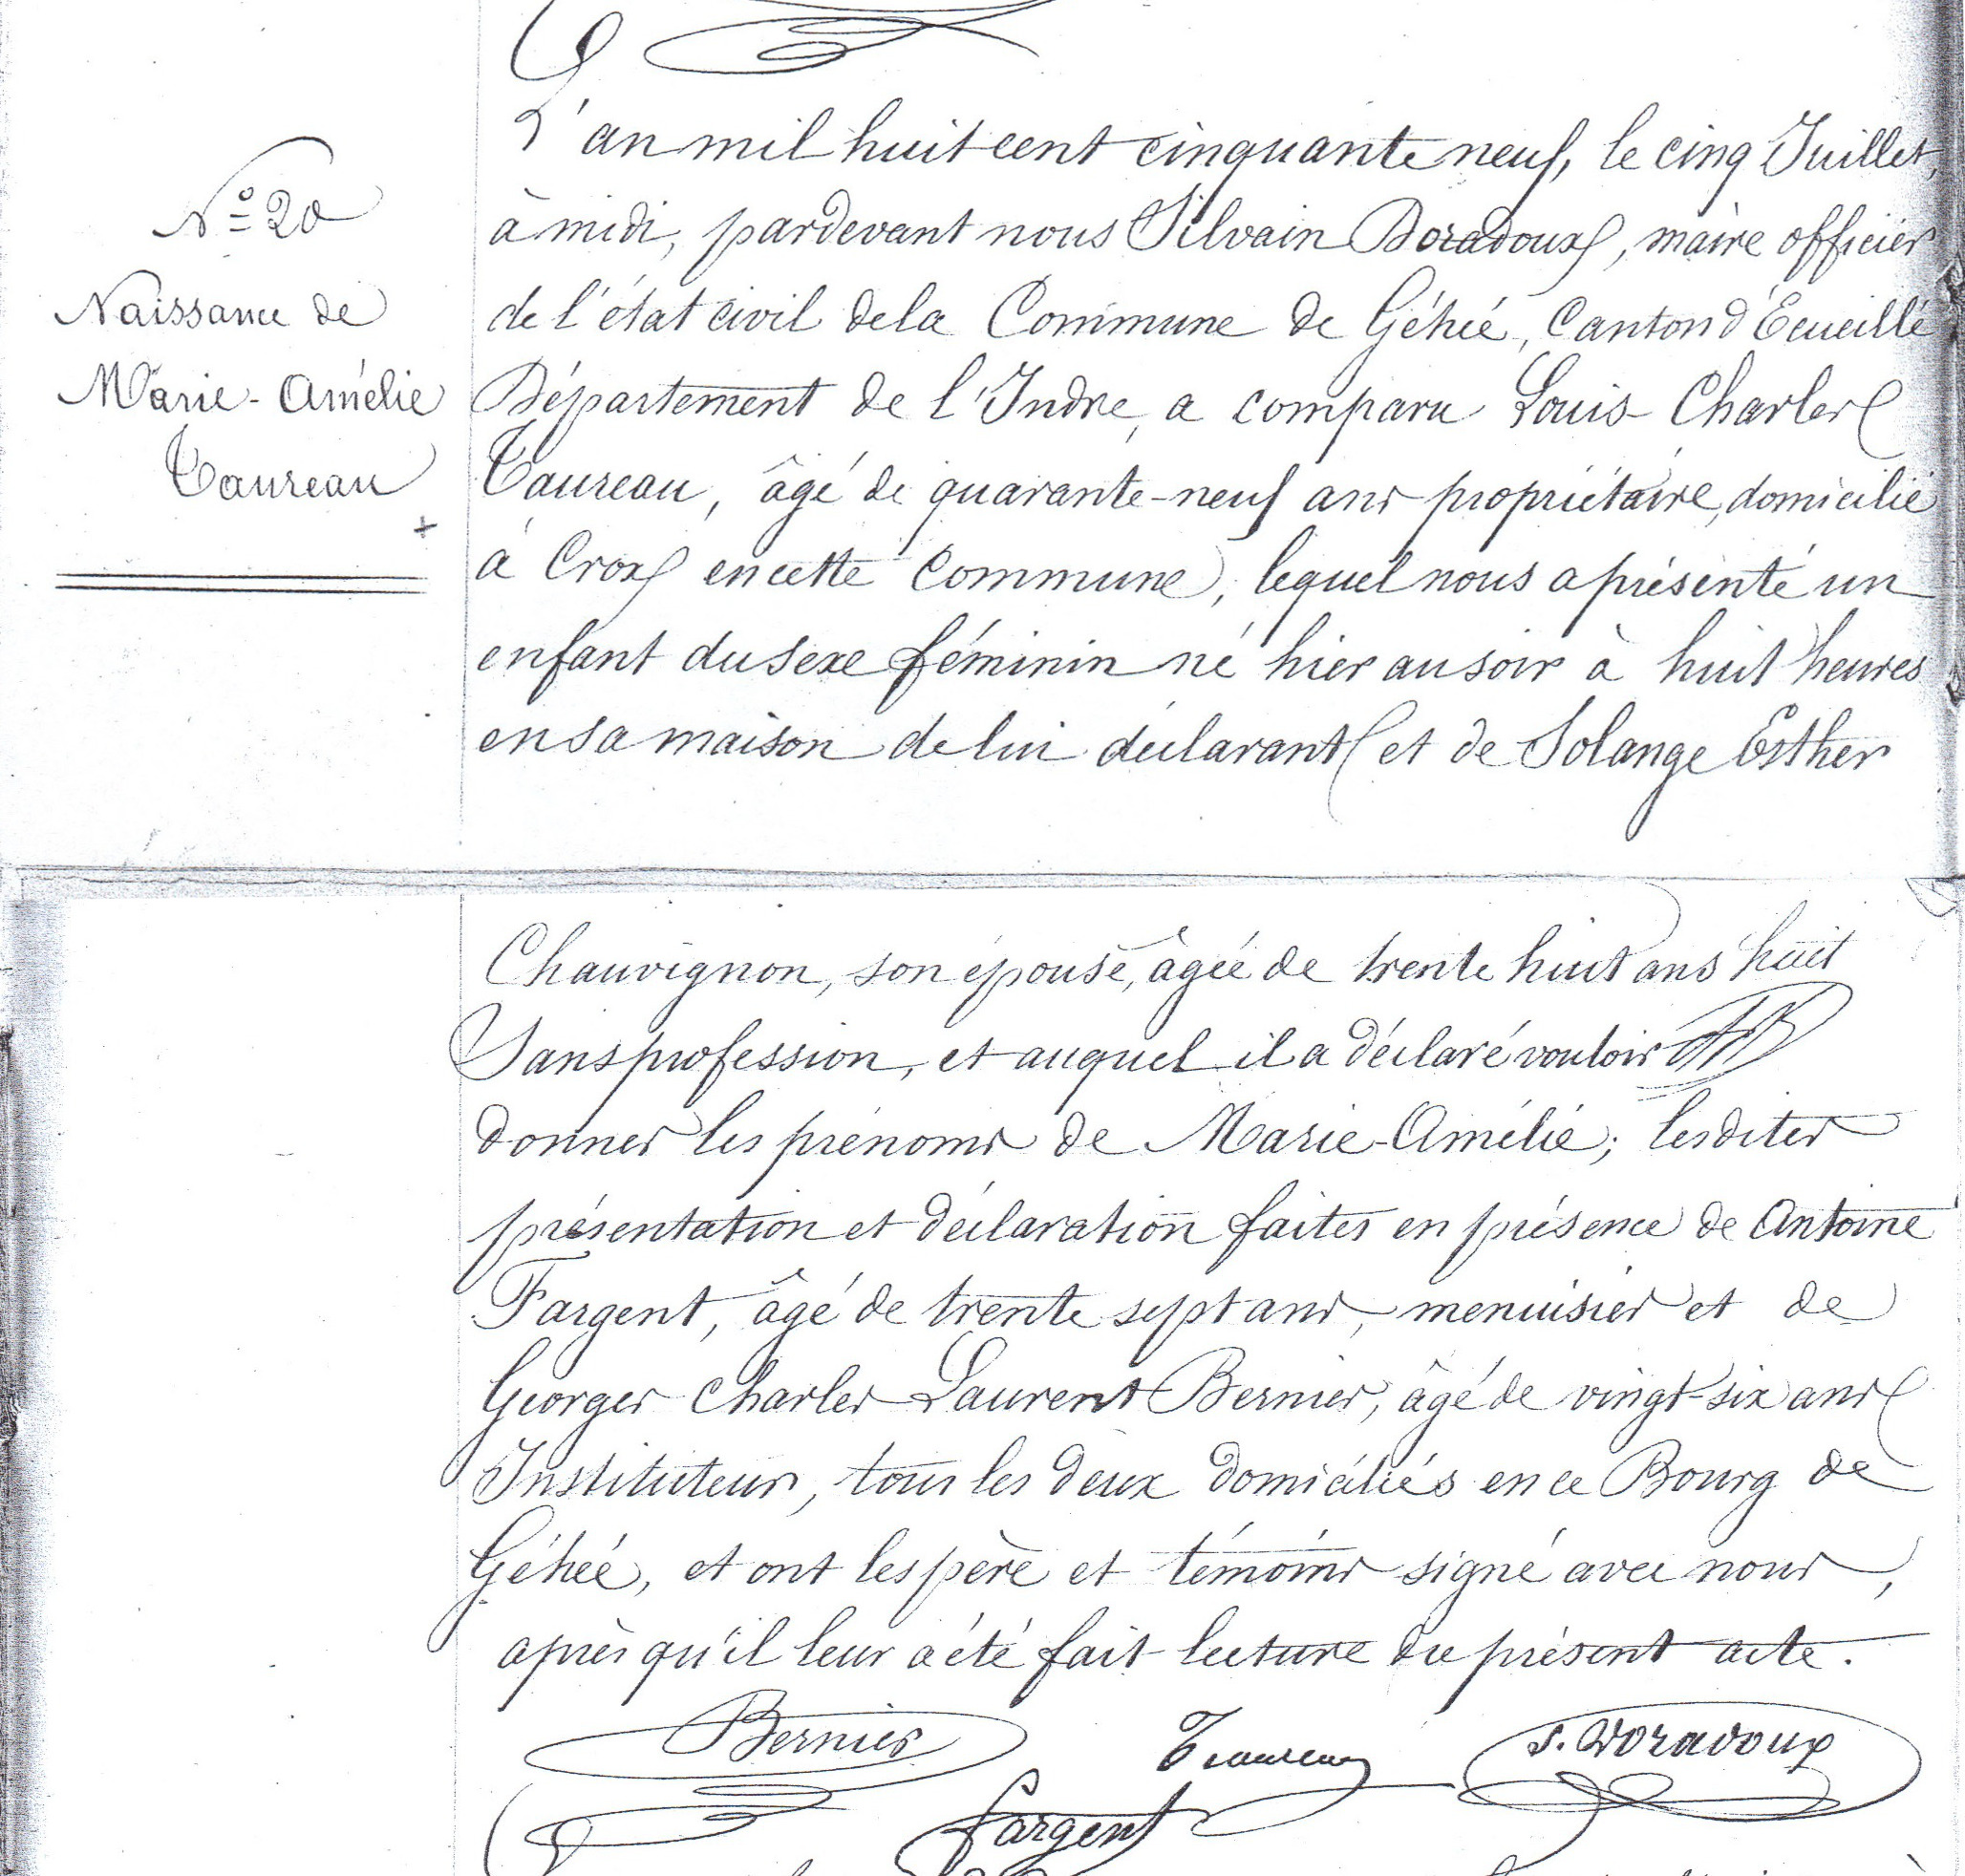 N° 20
Naissance de
Marie-Amélie
Taureau
L'an mil huit cent cinquante neuf, le cinq Juillet,
à midi, pardevant nous Silvain Doradoux, maire officier
de l'état civil de la Commune de Géhée, Canton d'Écueillé
Département de l'Indre, a comparu Louis-Charles
Taureau, âgé de quarante-neuf ans propriétaire, domicilié
à Crox en cette Commune, lequel nous a présenté un
enfant du sexe féminin né hier au soir à huit heures
en sa maison de lui déclarant et de Solange Esther
Chauvignon, son épouse, âgée de trente huit ans huit
Sans profession, et auquel il a déclaré vouloir
donner les prénoms de Marie-Amélie; lesdites
présentation et déclaration faites en présence de Antoine
Fargent, âgé de trente sept ans, menuisier et de
Georges Charles Laurent Bernier, âgé de vingt-six ans
Instituteur, tous les deux domiciliés en ce Bourg de
Géhée, et ont les père et témoins signé avec nous,
après qu'il leur a été fait lecture du présent acte.
Bernier Taureau S. Doradoux
Fargent